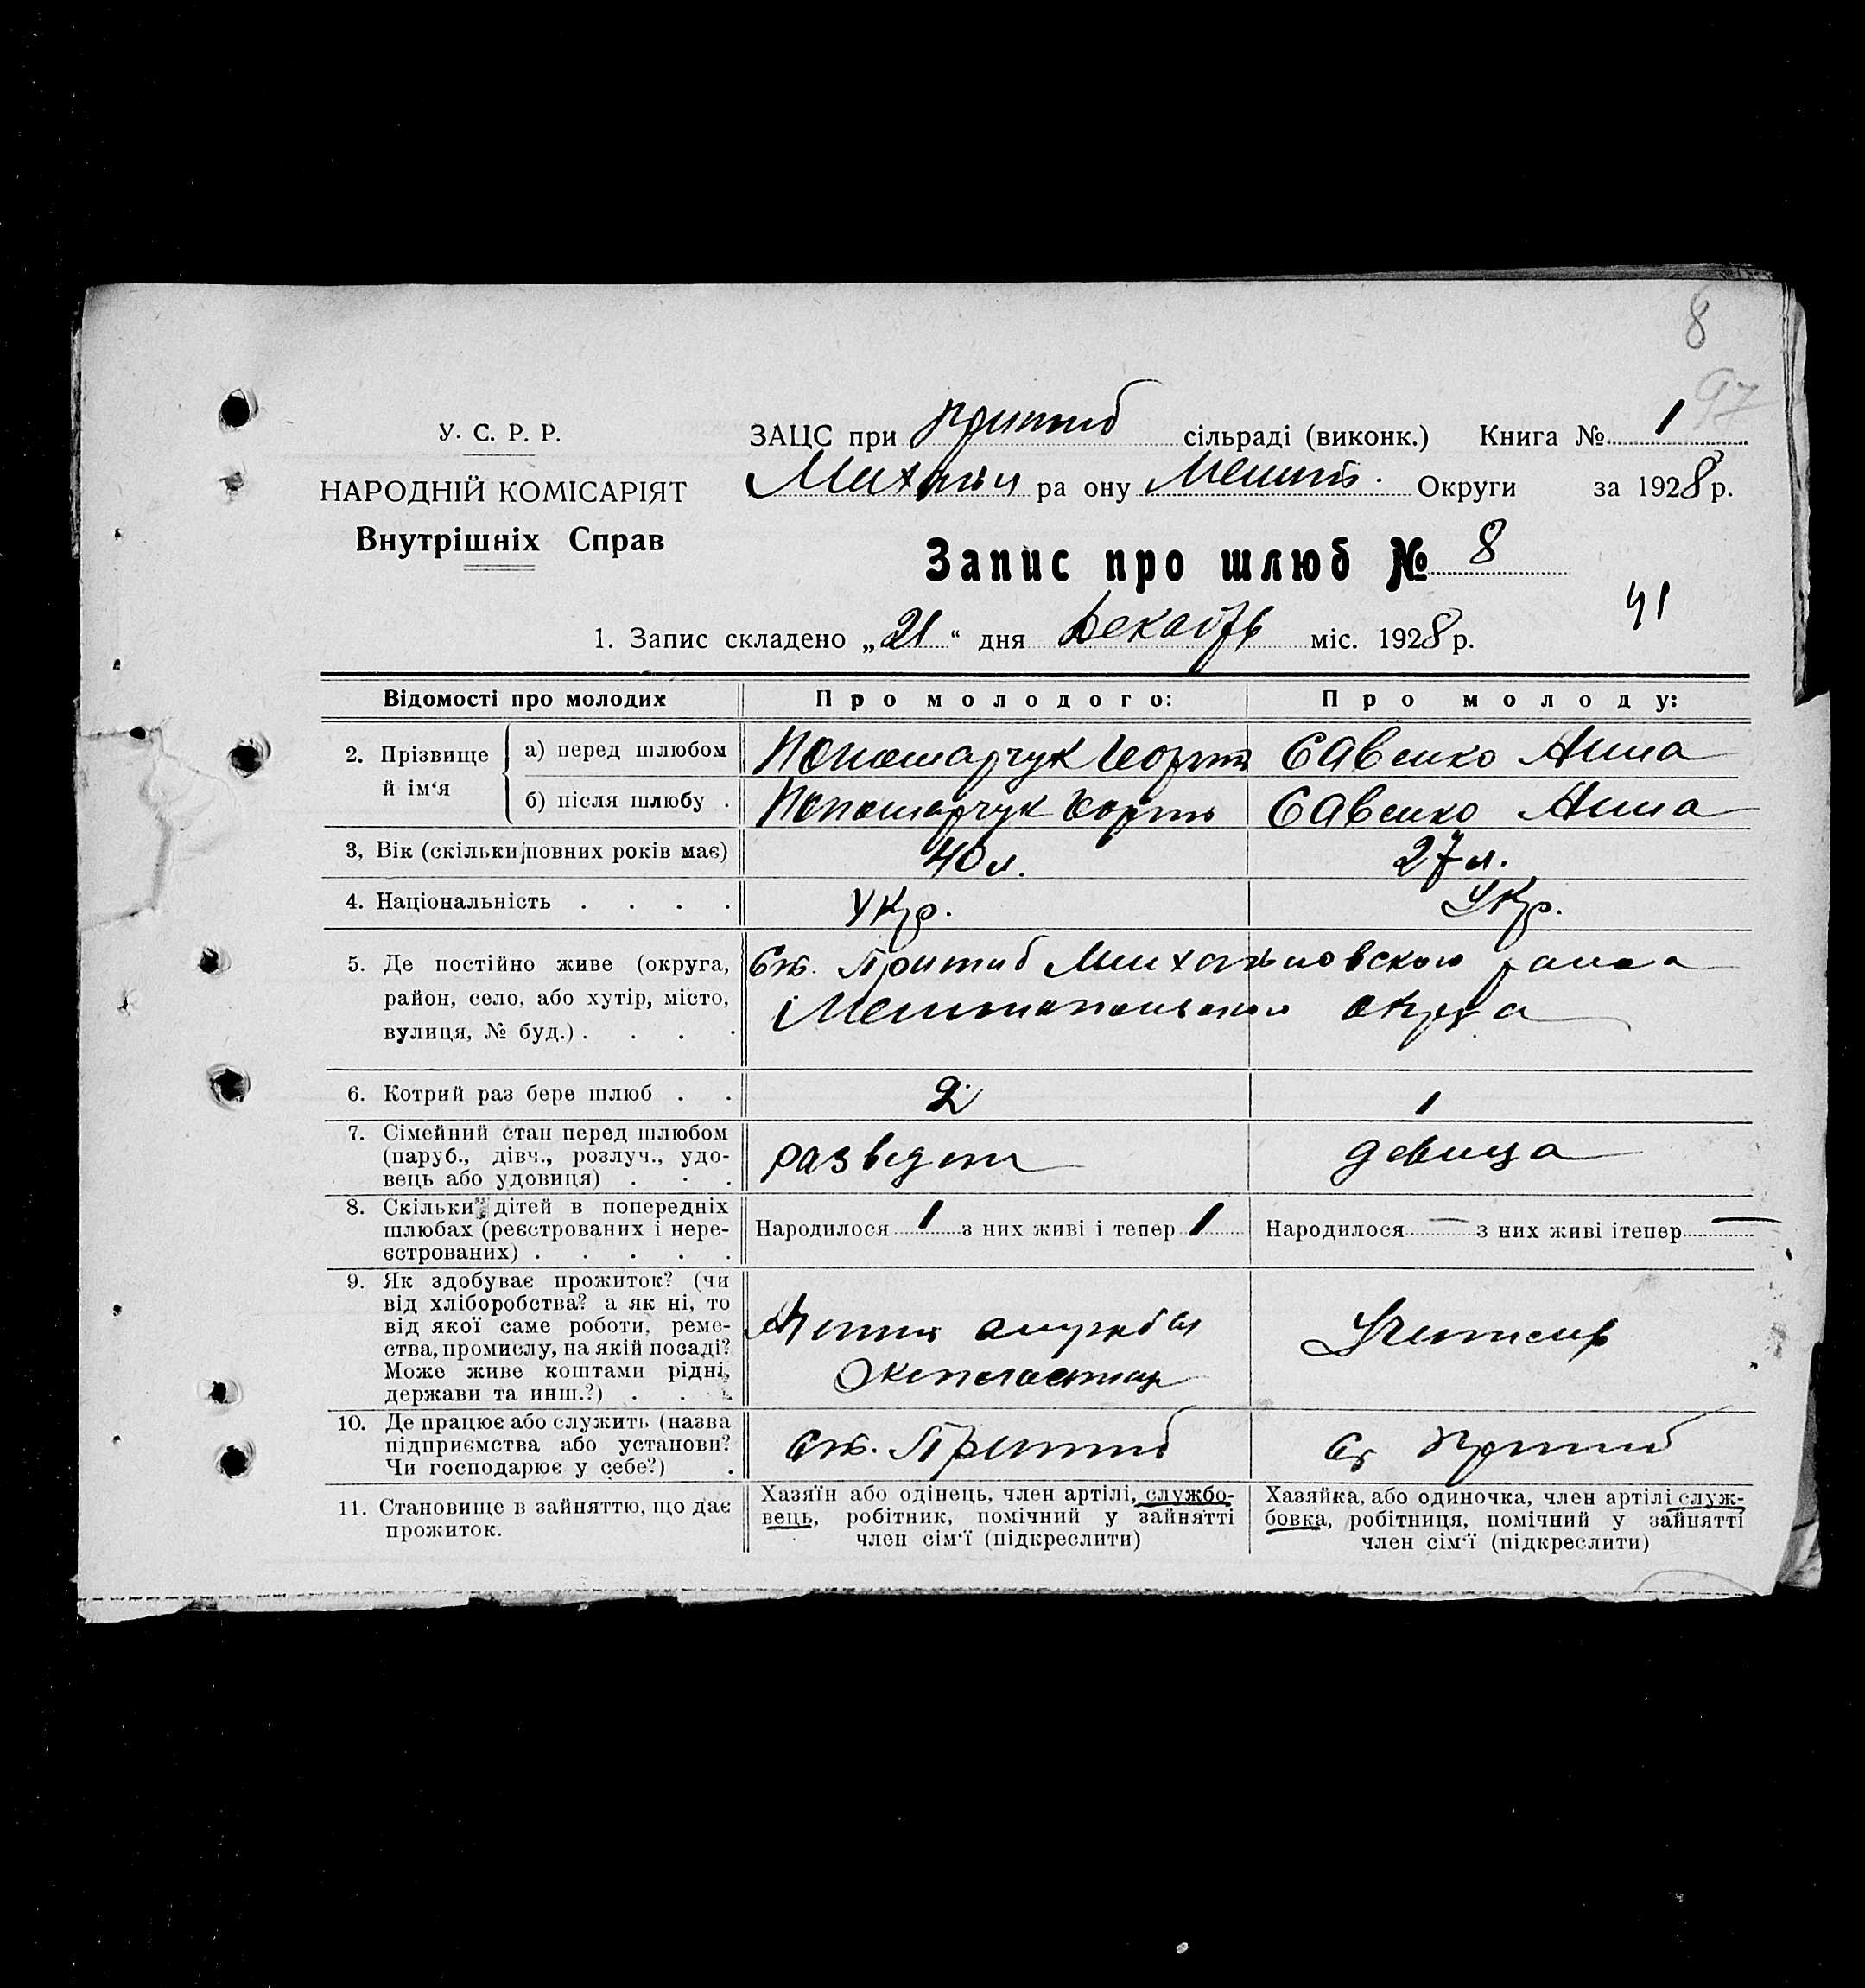 8
97
У. С. Р. Р.
НАРОДНІЙ КОМІСАРІЯТ
Внутрішніх Справ
ЗАЦС при Пришиб сільраді (виконк.) Книга № 1
Михайл ра ону Мелит. Округи за 1928 р.
Запис про шлюб № 8
41
1. Запис складено „21“ дня Декабря міс. 1928 р.
Відомості про молодих Про молодого: Про молоду:
2. Прізвище й ім‘я а) перед шлюбом Пономарчук Савенко Анна
б) після шлюбу . Пономарчук Савенко Анна
3, Вік (скільки повних років має) 40 л. 27 л.
4. Національність . . . . Укр. Укр.
5. Де постійно живе (округа, Ст. Пришиб Михайловского района
район, село, або хутір, місто, Мелитопольского округа
вулиця, № буд.) . . . .
6. Котрий раз бере шлюб . . 2 1
7. Сімейний стан перед шлюбом
(паруб., дівч., розлуч., удо- разведен девица
вець або удовиця) . . .
8. Скільки дітей в попередніх
шлюбах (реєстрованих і нере- Народилося 1 з них живі і тепер 1 Народилося — з них живі ітепер —
єстрованих) . . . . .
9. Як здобуває прожиток? (чи
від хліборобства? а як ні, то
від якої саме роботи, реме- служба
ства, промислу, на якій посаді? Учитель
Може живе коштами рідні,
держави та инш.?) . . .
10. Де працює або служить (назва
підприємства або установи? ст. Пришиб ст Пришиб
Чи господарює у себе?) .
11. Становище в зайняттю, що дає
прожиток.
Хазяїн або одінець, член артілі, службо-
вець, робітник, помічний у зайнятті
член сім‘ї (підкреслити)
Хазяйка, або одиночка, член артілі служ-
бовка, робітниця, помічний у зайнятті
член сім‘ї (підкреслити)